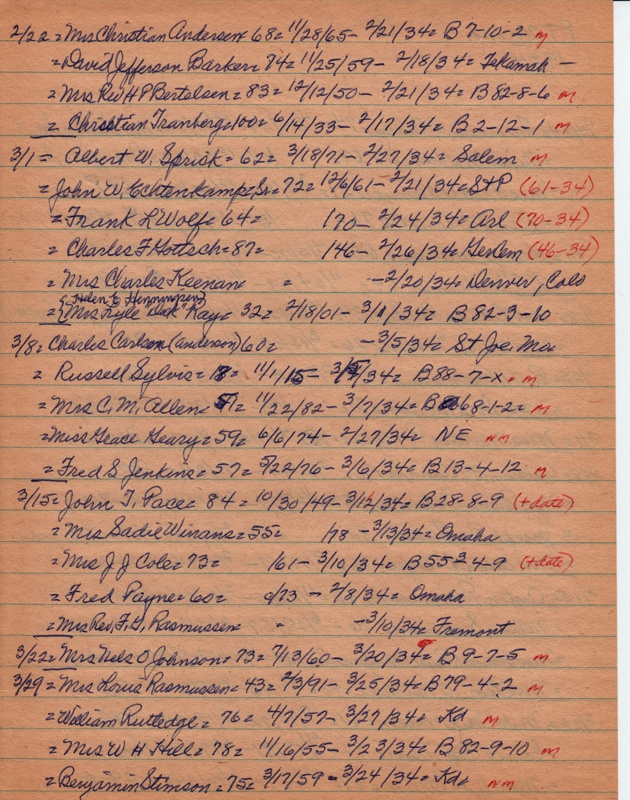 2/22 = Mrs Christian Andersen = 68 = 11/28/65 - 2/21/34 = B 7-10-2 m
= David Jefferson Barker = 74 = 11/25/59 - 2/18/34 = Tekamah -
= Mrs Rev H P Bertelsen = 83 = 12/12/50 - 2/21/34 = B 82-8-6 m
= Christian Tranberg = 100 = 6/14/33 - 2/17/34 = B 2-12-1 m
3/1 = Albert W. Sprick = 62 = 3/18/71 - 2/27/34 = Salem m
= John W. Echtenkamp, Sr. = 72 = 12/6/61 - 2/21/34 = St P (61-34)
= Frank L Wolf = 64 = 170 - 2/24/34 = Arl (70-34)
= Charles F Gottsch = 87 = 146 - 2/26/34 = GerCem (46-34)
= Mrs Charles Keenan = = - 2/20/34 = Denver, Colo
{Helen E Henningsen}
= {Mrs Lyle Dak Kay = 32 = 2/18/01 - 3/1/34 = B 82-3-10
3/8 = Charles Carlson (Anderson) 60 = - 3/5/34 = St Joe, Mo
= Russell Sylvis = 18 = 11/1/15 - 3/5/34 = B 88-7-X = m
= Mrs C. M. Allen = 51 = 11/22/82 - 3/7/34 = B 68-1-2 = m
= Miss Grace Geary = 59 = 6/6/74 - 2/27/34 = NE nm
= Fred S. Jenkins = 57 = 5/22/76 - 3/6/34 = B 13-4-12 m
3/15 = John T. Pace = 84 = 10/30/49 - 3/12/34 = B 28-8-9 (+date)
= Mrs Sadie Winans = 55 = 178 - 3/13/34 = Omaha
= Mrs J J Cole = 73 = 161 - 3/10/34 = B 55 3 4-9 (+date)
= Fred Payne = 60 = c/73 - 2/8/34 = Omaha
= Mrs Rev. F. G. Rasmussen = = - 3/10/34 = Fremont
3/22 = Mrs Nels O Johnson = 73 = 7/13/60 - 3/20/34 = B 9-7-5 m
3/29 = Mrs Louis Rasmussen = 43 = 2/3/91 - 3/25/34 = B 79-4-2 m
= William Rutledge = 76 = 4/7/57 - 3/27/34 = Kd m
= Mrs W H Hill = 78 = 11/16/55 - 3/23/34 = B 82-9-10 m
= Benjamin Stimson = 75 = 3/17/59 - 3/24/34 = Kd = nm